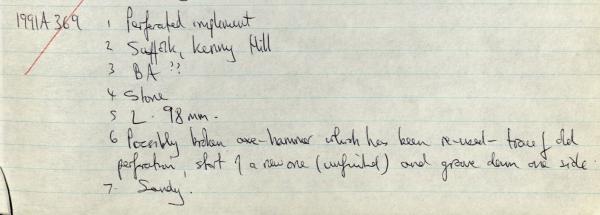 1991A 369
1 Perforated implement
2 Suffolk, Kenny Hill
3 BA ??
4 Stone
5 L. 98 mm.
6 Possibly broken axe-hammer which has been re-used - trace of old
perforation, start of a new one (unfinished) and groove down one side.
7. Sandy.